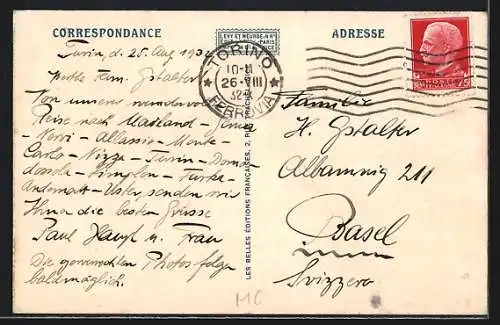 CORRESPONDANCE
LEVY ET NEURDEIN Rs
PARIS
ADRESSE
TORINO
10-11
26·VIII
32
FERROVIA
Turin, d. 25. Aug 193
Werte Fam. Gstalter
Von unserer wundervollen
Reise nach Mailand – Genua
– Nervi – Allassio – Monte-
Carlo – Nizza – Turin – Domo-
dossola – Simplon – Furka –
Andermatt – Uster, senden wir
Ihnen die besten Grüsse
Paul Haupt u. Frau
Die gewünschten Photos folgen
baldmöglich.
LES BELLES ÉDITIONS FRANÇAISES, 2, RUE
Familie
H. Gstalter
211
Basel
Svizzera
75
MC